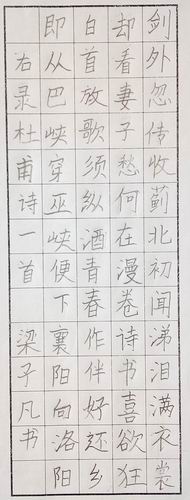 剑外忽传收蓟北初闻涕泪满衣裳
却看妻子愁何在漫卷诗书喜欲狂
白首放歌须纵酒青春作伴好还乡
即从巴峡穿巫峡便下襄阳向洛阳
右录杜甫诗一首 梁子凡书